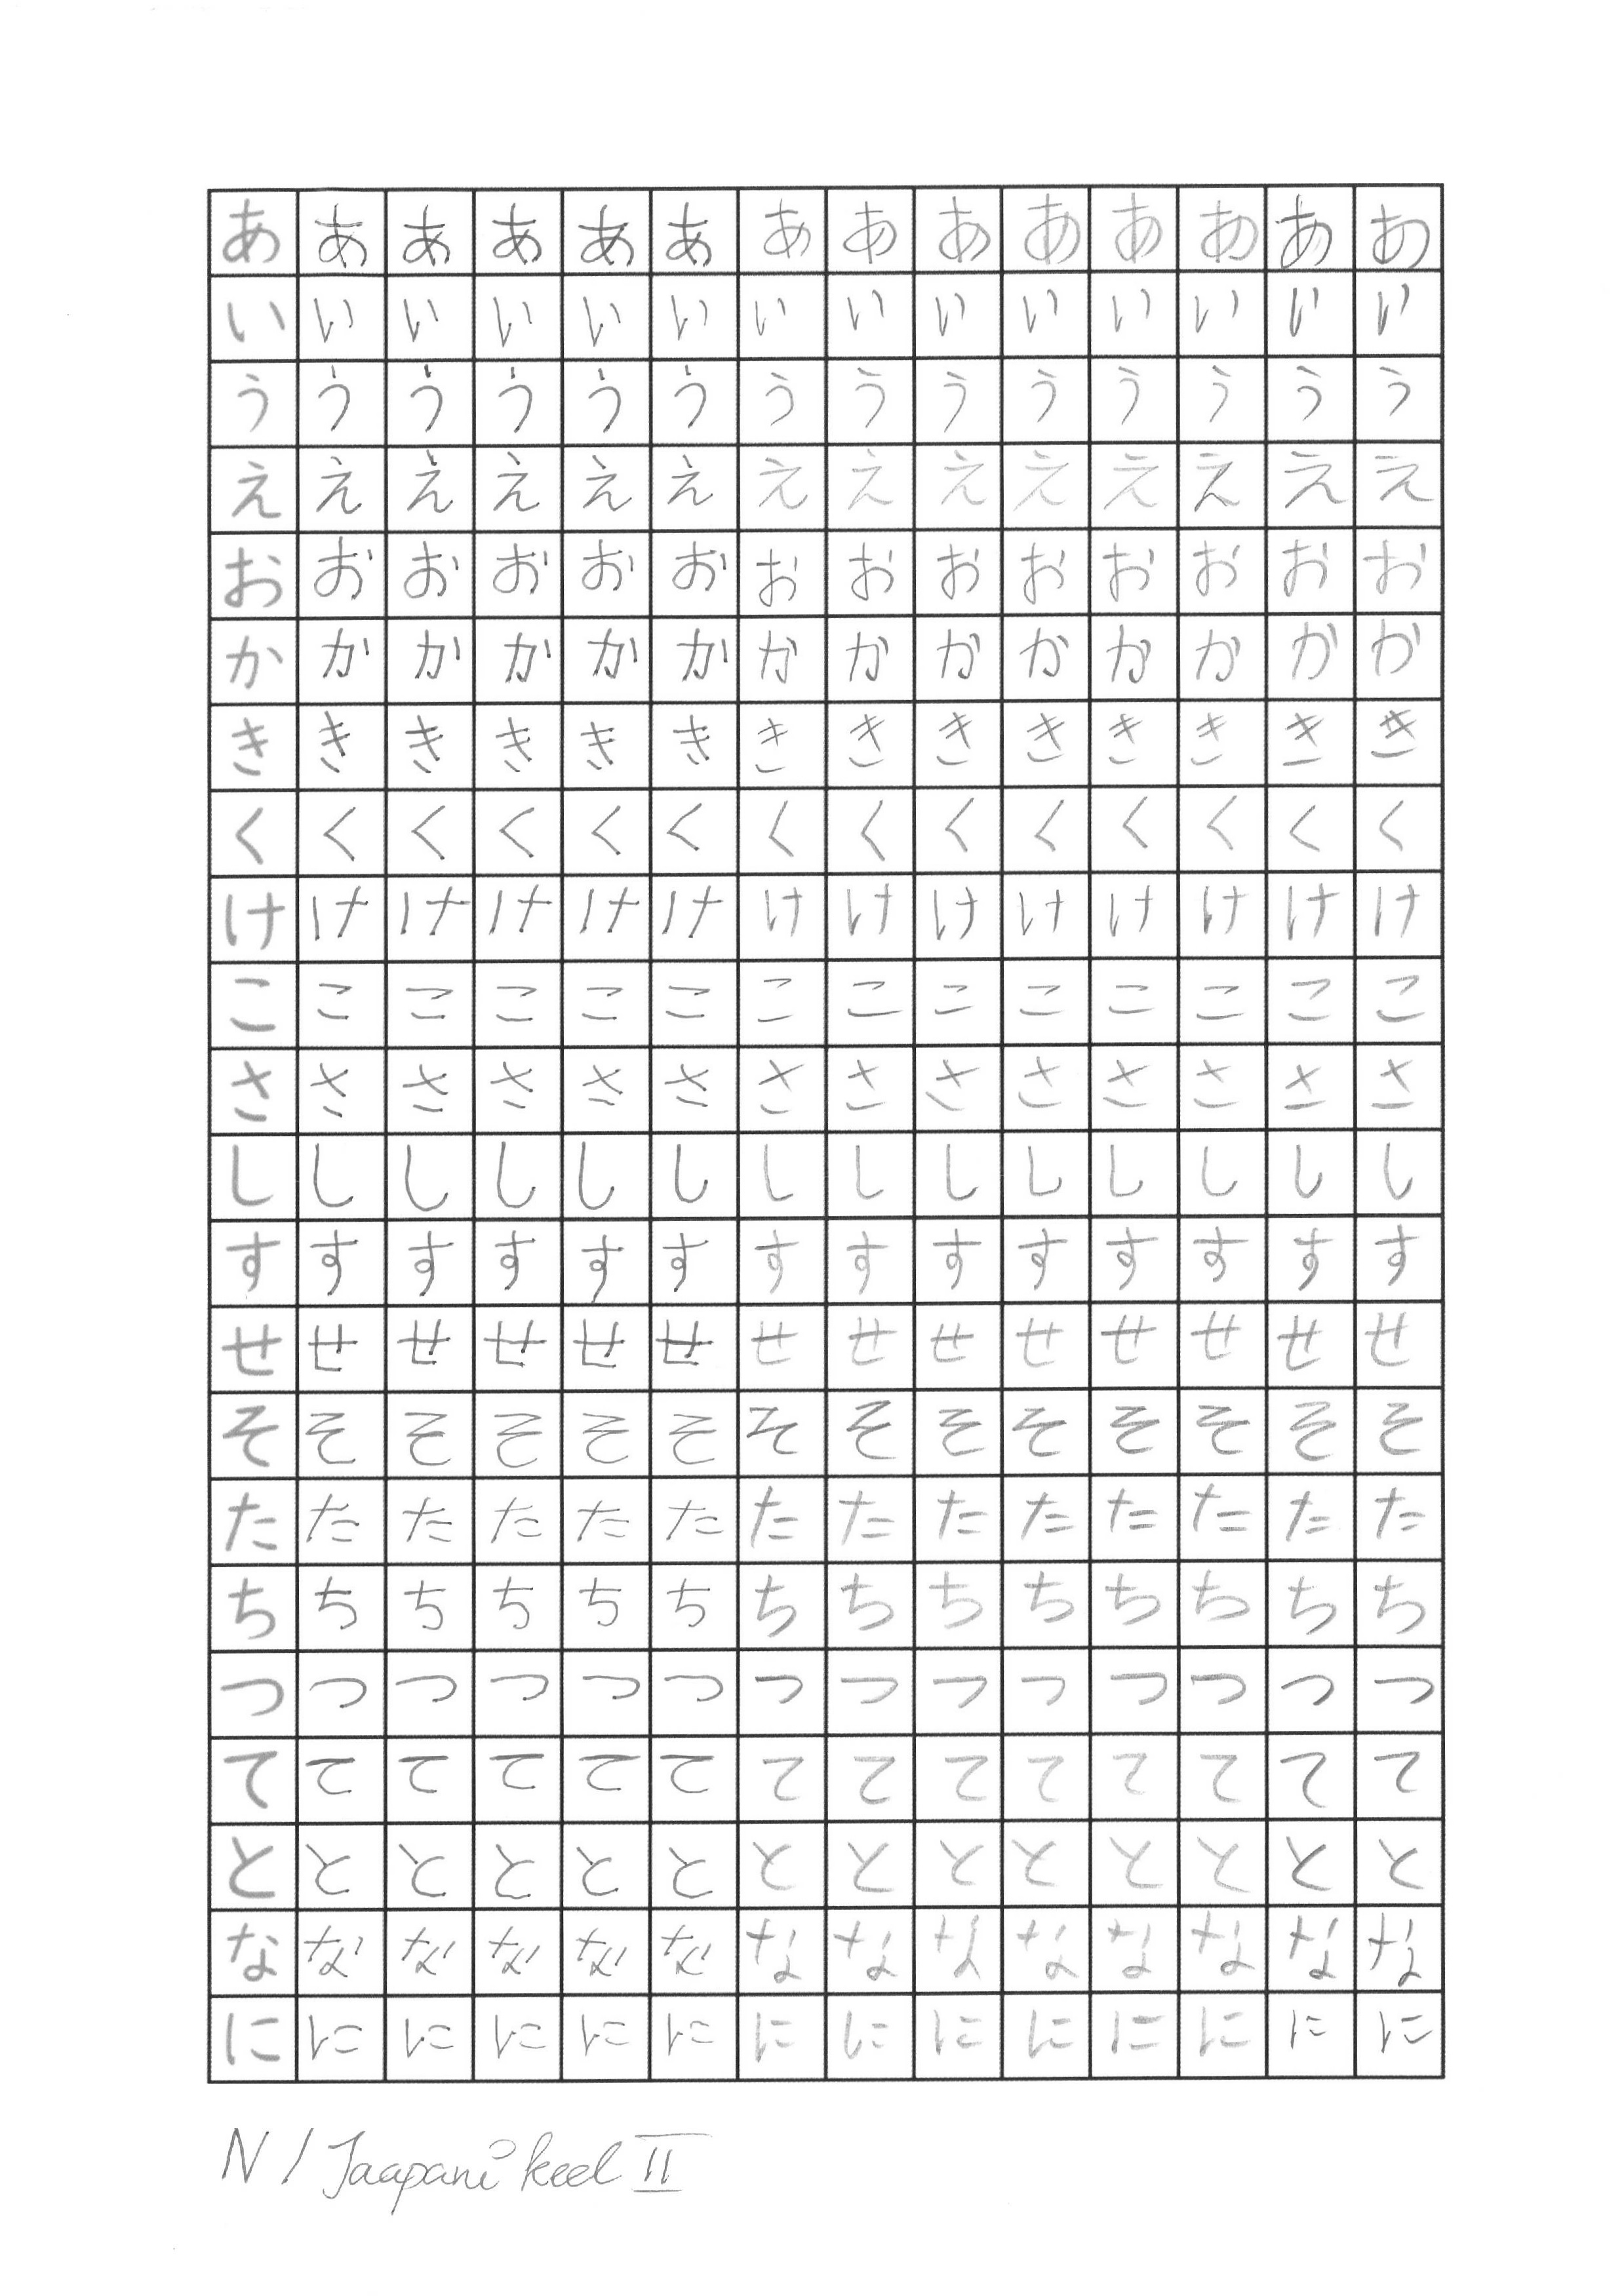 あ あ あ あ あ あ あ あ あ あ あ あ あ あ
い い い い い い い い い い い い い い
う う う う う う う う う う う う う う
え え え え え え え え え え え え え え
お お お お お お お お お お お お お お
か か か か か か か か か か か か か か
き き き き き き き き き き き き き き
く く く く く く く く く く く く く く
け け け け け け け け け け け け け け
こ こ こ こ こ こ こ こ こ こ こ こ こ こ
さ さ さ さ さ さ さ さ さ さ さ さ さ さ
し し し し し し し し し し し し し し
す す す す す す す す す す す す す す
せ せ せ せ せ せ せ せ せ せ せ せ せ せ
そ そ そ そ そ そ そ そ そ そ そ そ そ そ
た た た た た た た た た た た た た た
ち ち ち ち ち ち ち ち ち ち ち ち ち ち
つ つ つ つ つ つ つ つ つ つ つ つ つ つ
て て て て て て て て て て て て て て
と と と と と と と と と と と と と と
な な な な な な な な な な な な な な
に に に に に に に に に に に に に に
N / Jaapani keel II